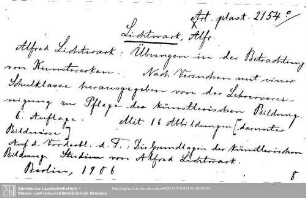 Art. plast. 2154 o
Lichtwark, Alfr.
Alfred Lichtwark: Übungen in der Betrachtung
von Kunstwerken. Nach Versuchen mit einer
Schulklasse herausgegeben von der Lehrerverei-
nigung zur Pflege der künstlerischen Bildung.
6. Auflage. Mit 16 Abbildungen [darunter
Bildnisse]
Auf d. Vordertbl. d. T.: Die Grundlagen der künstlerischen
Bildung. Studien von Alfred Lichtwark.
Berlin, 1906
8
Sächsische Landesbibliothek -
Staats- und Universitätsbibliothek Dresden